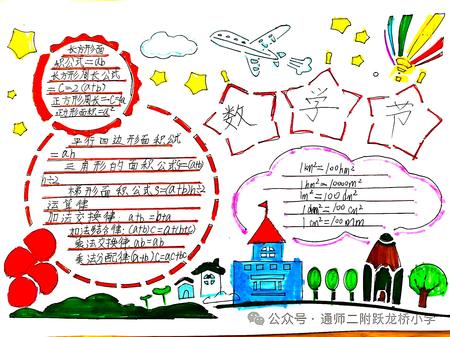 长方形面
积公式=ab
长方形周长公式
=C=2(a+b)
正方形周长=C=4a
正方形面积=a²
平行四边形面积公式
=ah
三角形的面积公式S=(a+b)
h÷2
梯形面积公式S=(a+b)h÷2
运算律
加法交换律:a+b=b+a
加法结合律:(a+b)C=a+(b+c)
乘法交换律ab=ab
乘法分配律(a+b)C=ac+bc
数学节
1km²=100hm²
1hm²=10000m²
1m²=100dm²
1dm²=100cm²
1cm²=100mm
公众号·通师二附跃龙桥小学